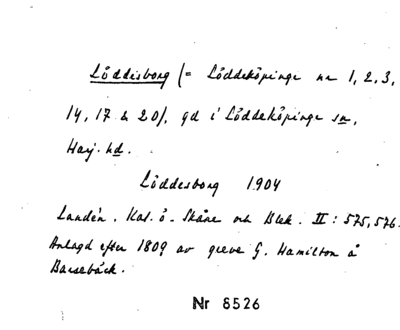 Löddesborg (= Löddeköpinge nr 1, 2, 3,
14, 17 & 20/, gd i Löddeköpinge sn,
Harj. hd.
Löddesborg 1904
Landén. Kal. ö. Skåne och Blek. II: 575, 576.
Anlagd efter 1809 av greve G. Hamilton å
Barsebäck.
Nr 8526